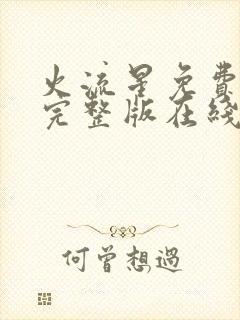 火流星免費
完整版在綫
何曾想過